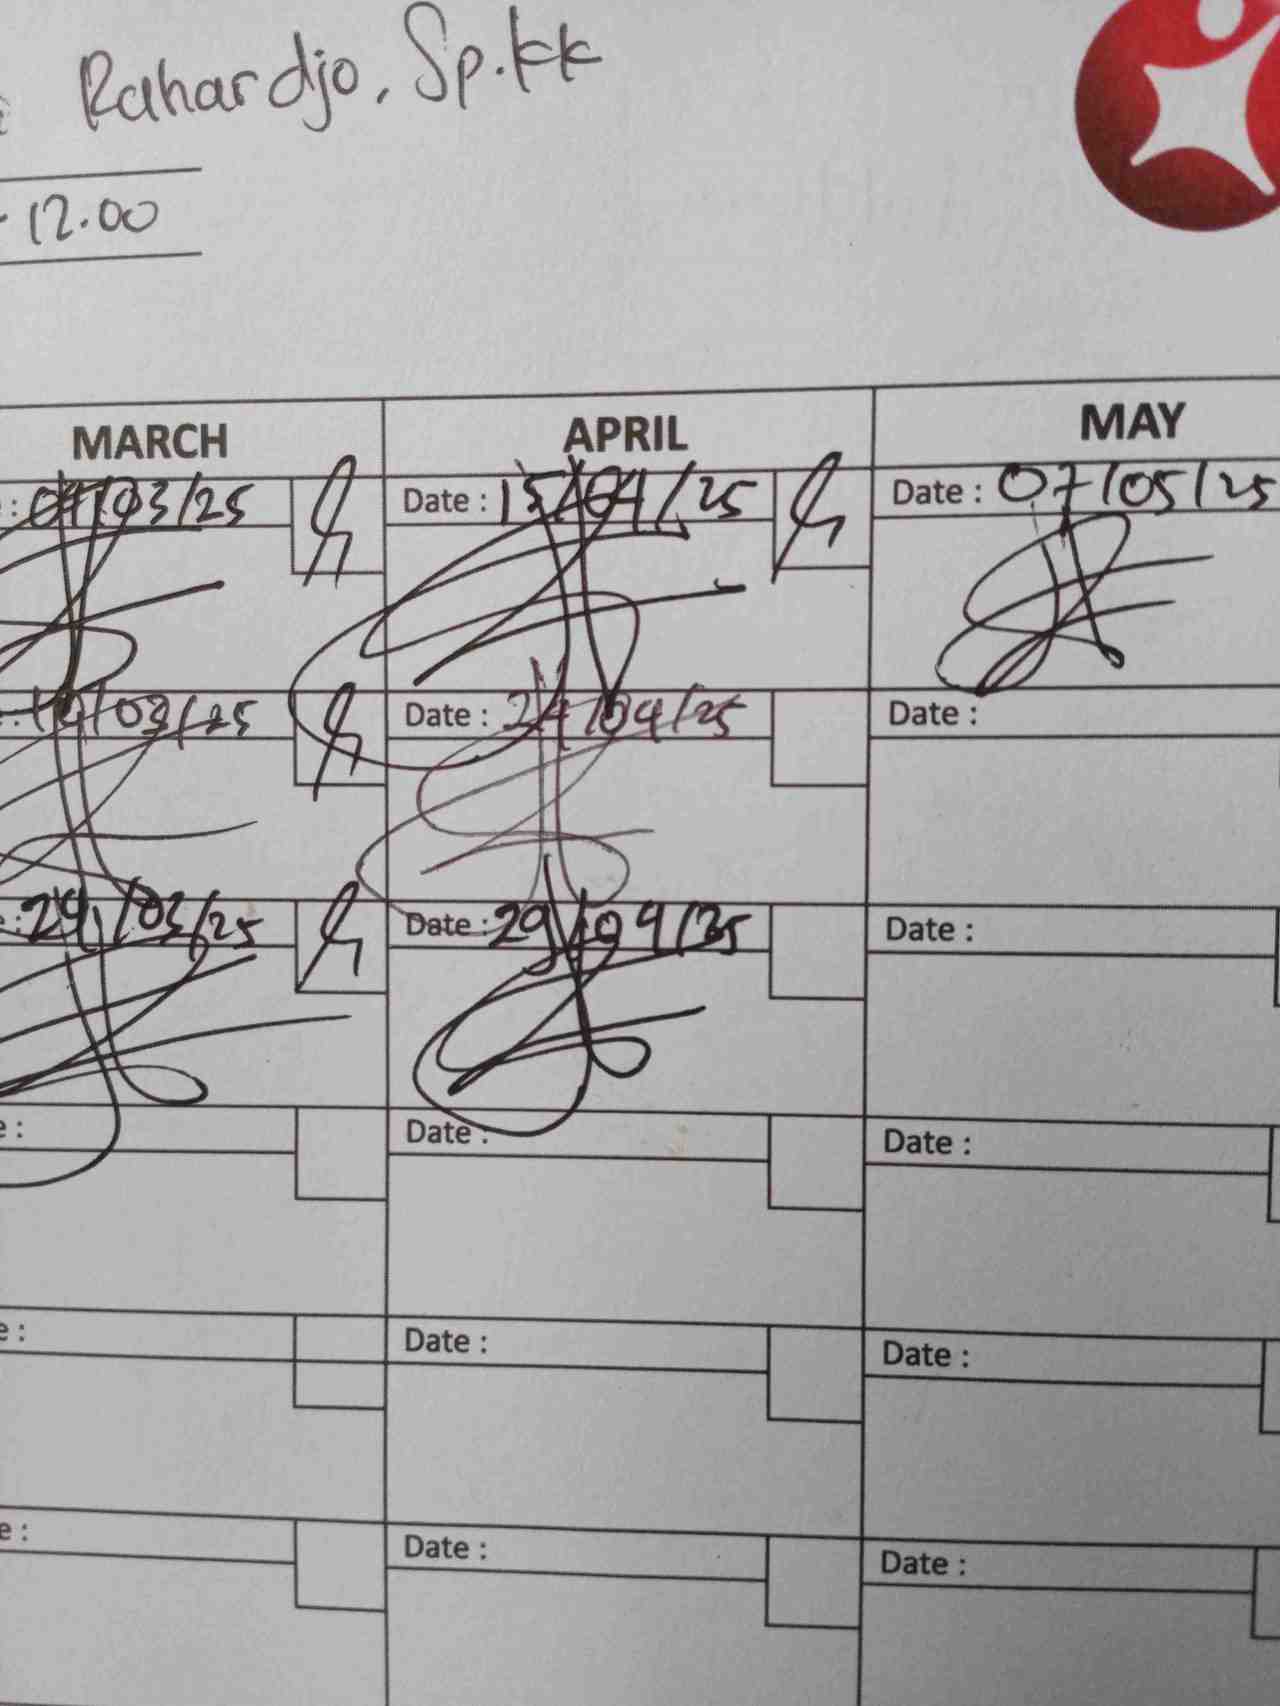 Rahardjo, Sp.kk
- 12.00
MARCH APRIL MAY
: 04/03/25 Date : 15/04/25 Date : 07/05/25
: 14/03/25 Date : 24/04/25 Date :
: 24/03/25 Date : 29/04/25 Date :
e : Date : Date :
e : Date : Date :
e : Date : Date :